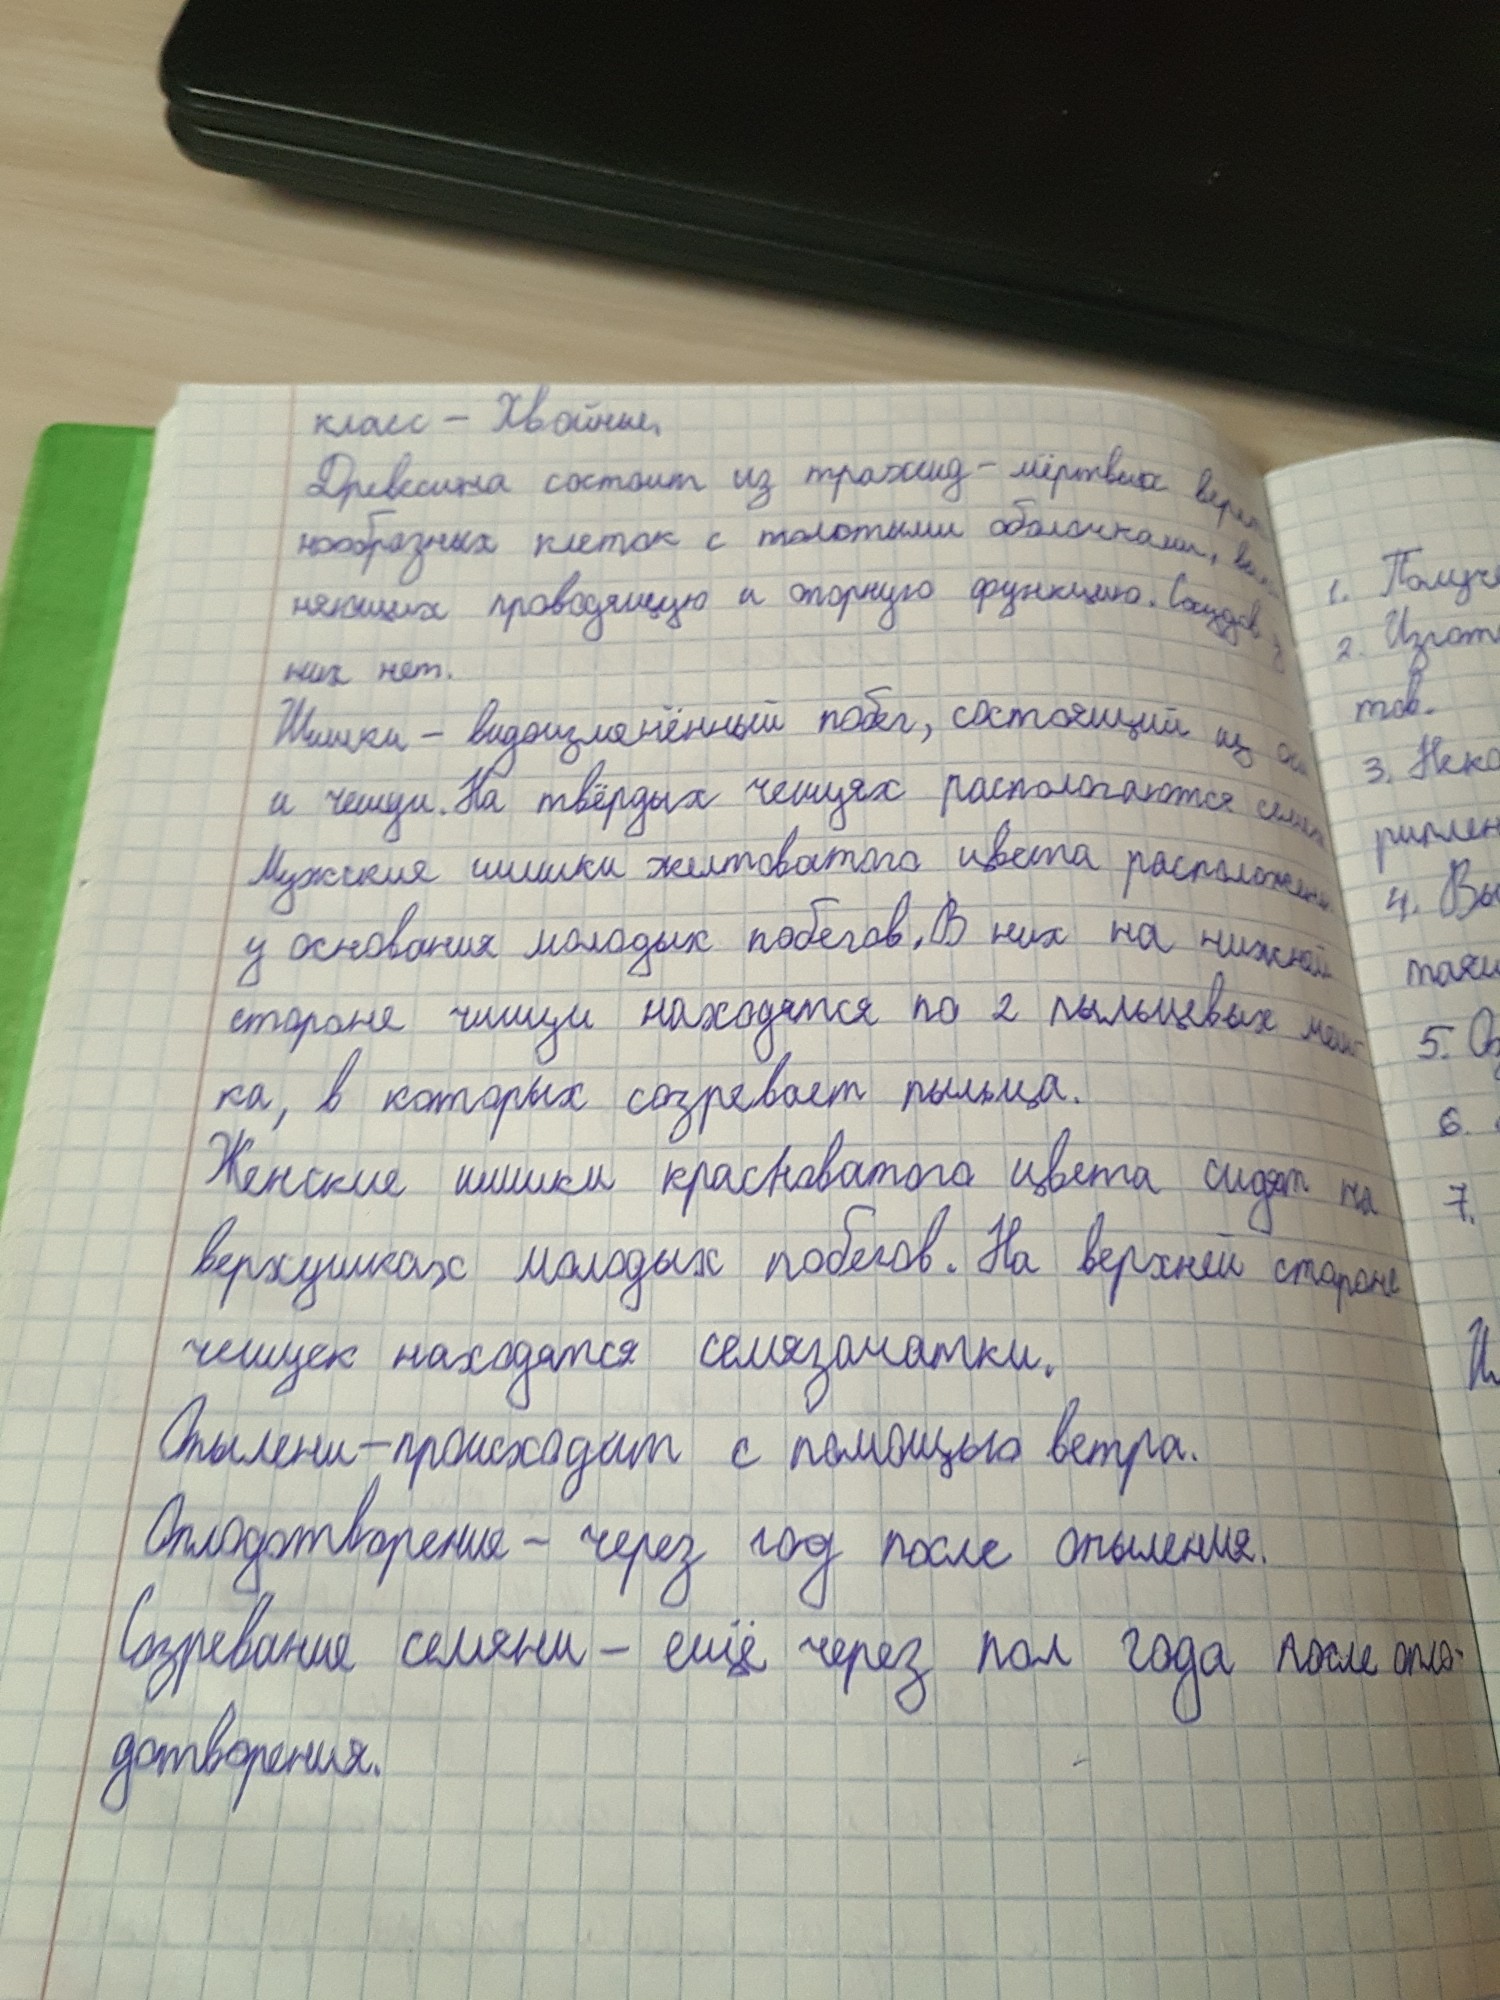 класс – Хвойные.
Древесина состоит из трахеид – мёртвых верет
нообразных клеток с толстыми оболочками, вып
няющих проводящую и опорную функцию. Сосудов у
них нет.
Шишки – видоизменённый побег, состоящий из оси
и чешуи. На твёрдых чешуях распологаются семена
Мужские шишки желтоватого цвета расположены
у основания молодых побегов. В них на нижней
стороне чишуи находятся по 2 пыльцевых меш-
ка, в которых созревает пыльца.
Женские шишки красноватого цвета сидят на
верхушках молодых побегов. На верхней стороне
чешуек находятся семязачатки.
Опылени – происходит с помощью ветра.
Оплодотворение – через год после опыления.
Созревание семяни – ещё через пол года после опло-
дотворения.
1. Получе
2. Изгот
тов.
3. Неко
риплен
4. Вы
таки
5. Оз
6.
7.